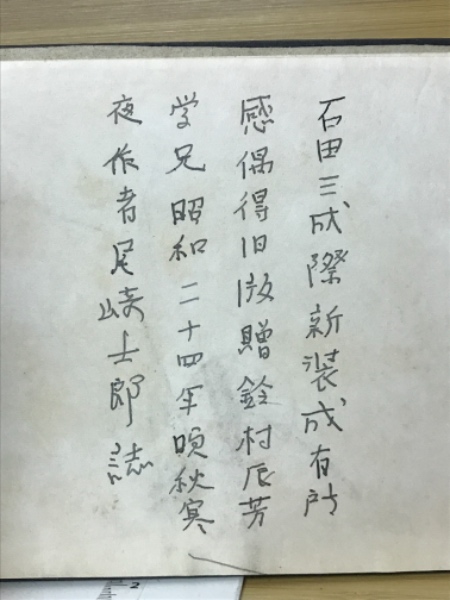 石田三成際新装成有所
感偶得旧版贈鈴村辰芳
学兄昭和二十四年頃秋寒
夜作者尾崎士郎誌